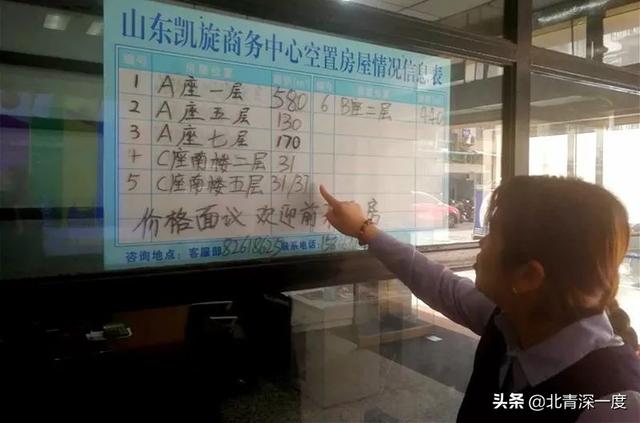 山东凯旋商务中心空置房屋情况信息表
编号 房屋位置 面积(m²) 编号 房屋位置
1 A座一层 580 6 B座二层
2 A座五层 130
3 A座七层 170
4 C座南楼二层 31
5 C座南楼五层 31/37
价格面议 欢迎前 房
咨询地点：客服部82618625联系电话：
头条 @北青深一度